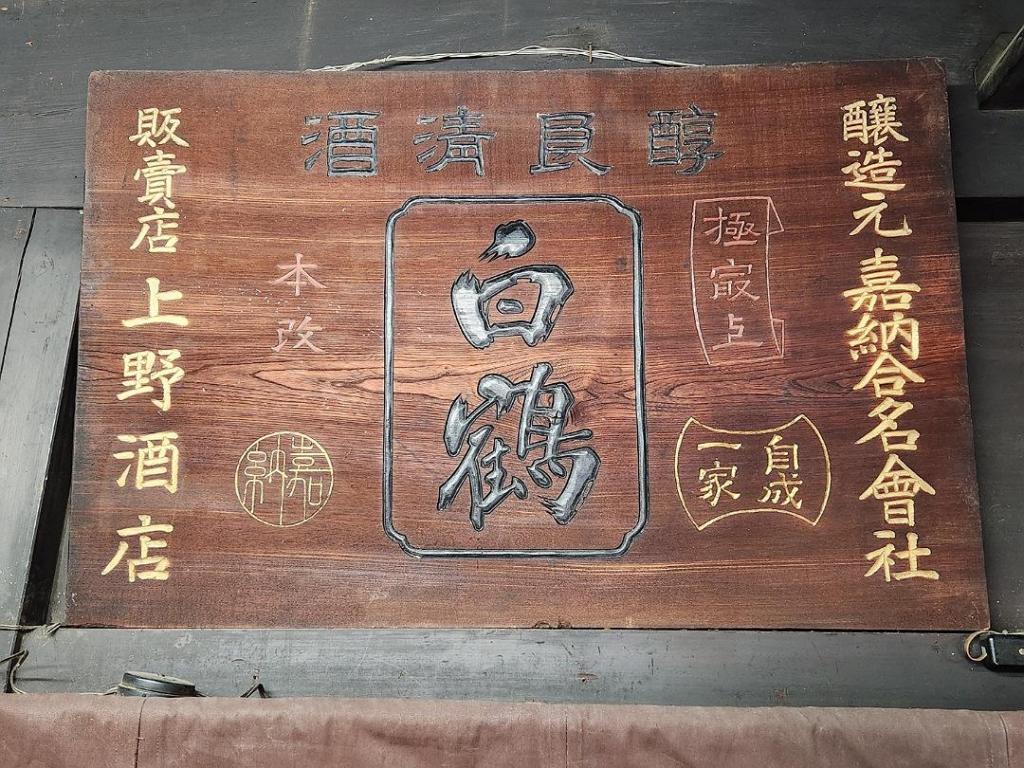 醇良清酒
釀造元 嘉納合名會社
極㝡上
自成
一家
白鶴
本改
嘉納
販賣店 上野酒店